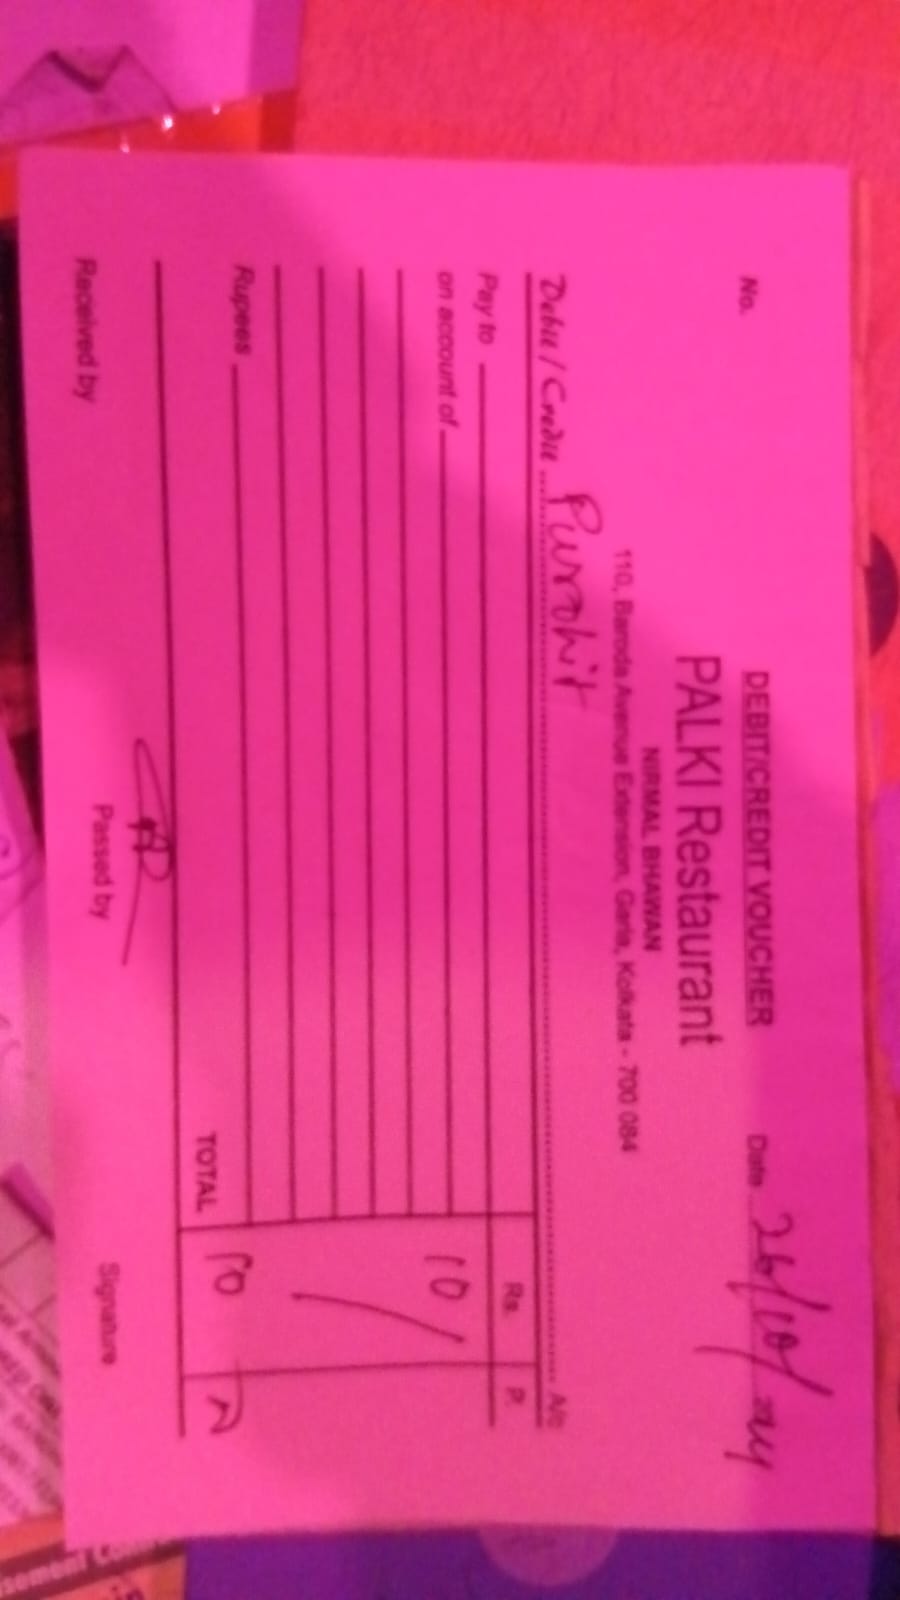 DEBIT/CREDIT VOUCHER
No. Date 26/10/
PALKI Restaurant
NIRMAL BHAWAN
110, Baroda Avenue Extension, Garia, Kolkata - 700 084
Debit / Credit Purrohit A/c
Rs. P.
Pay to
on account of 10
Rupees
TOTAL 10
Received by Passed by Signature